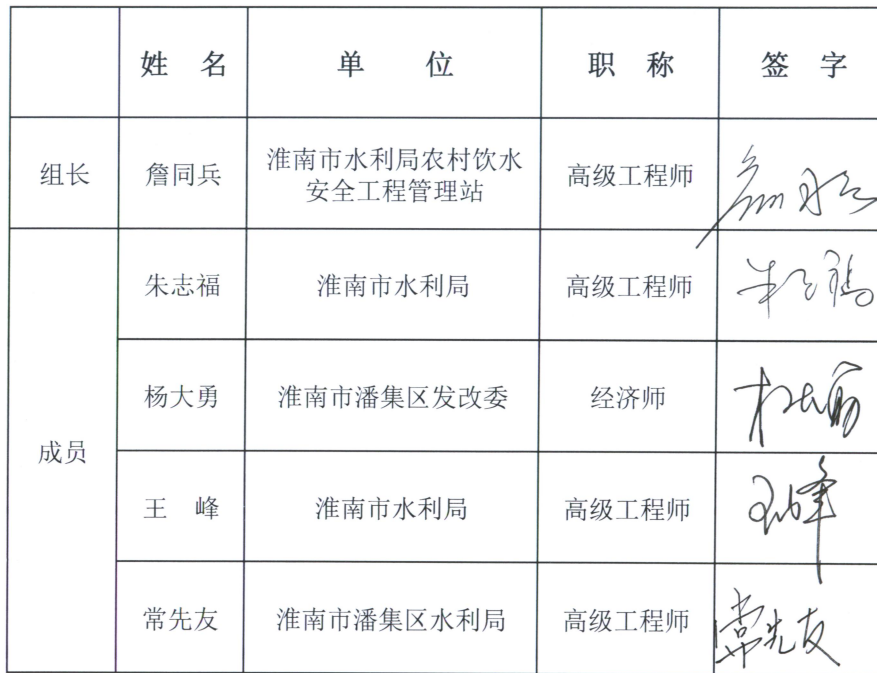 姓 名 单 位 职 称 签 字
组长 詹同兵 淮南市水利局农村饮水 高级工程师
安全工程管理站
朱志福 淮南市水利局 高级工程师 朱志福
杨大勇 淮南市潘集区发改委 经济师 杨大勇
成员
王 峰 淮南市水利局 高级工程师 王峰
常先友 淮南市潘集区水利局 高级工程师 常先友